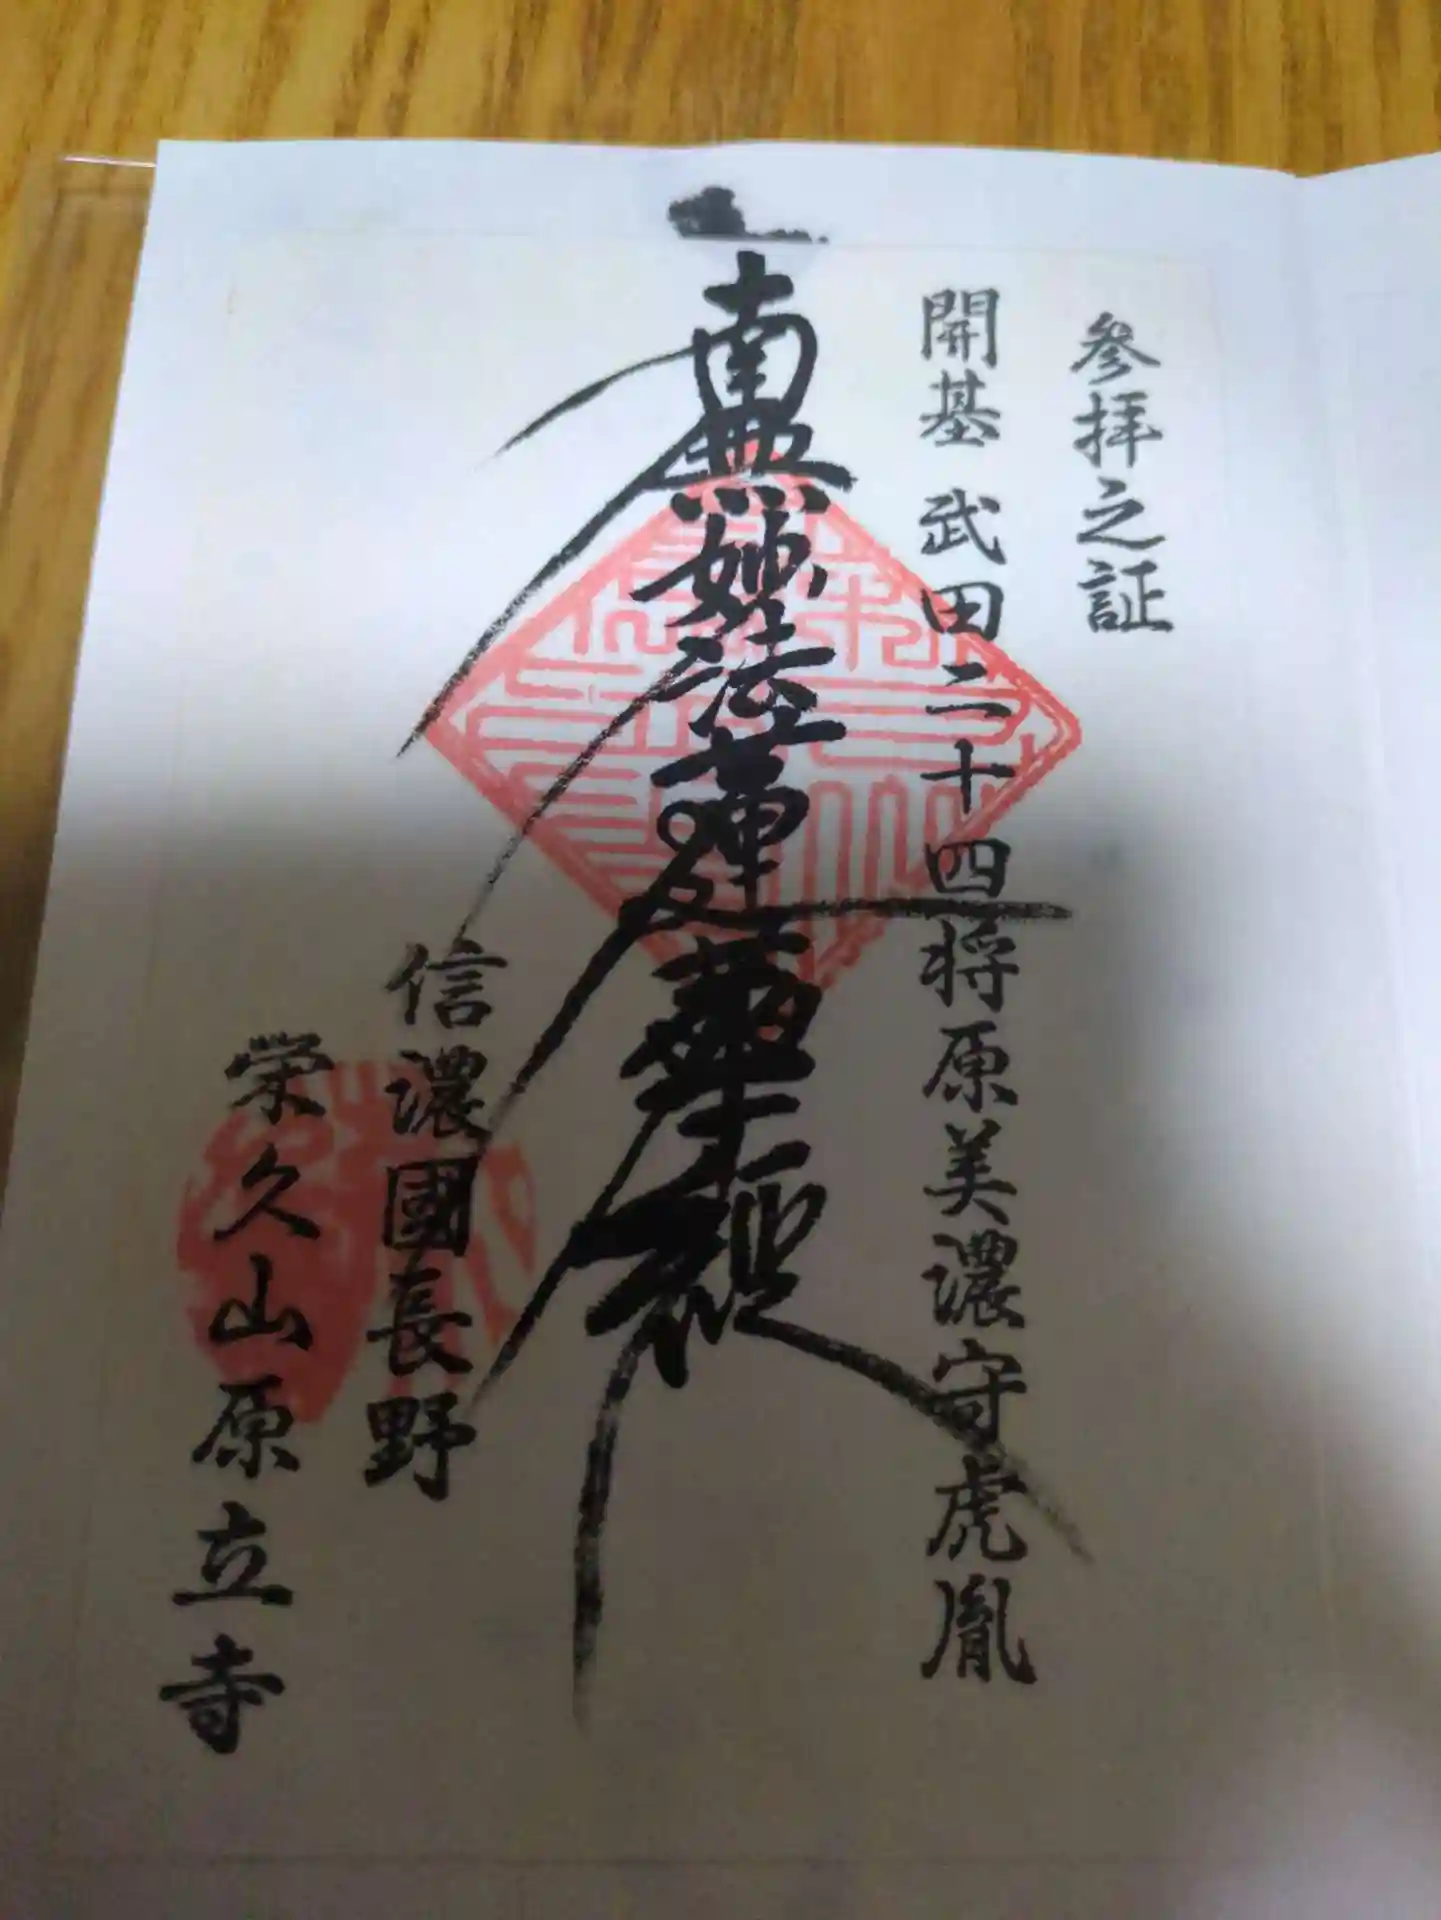 参拝之証
開基 武田二十四将原美濃守虎胤
南無妙法蓮華経
信濃國長野
栄久山原立寺